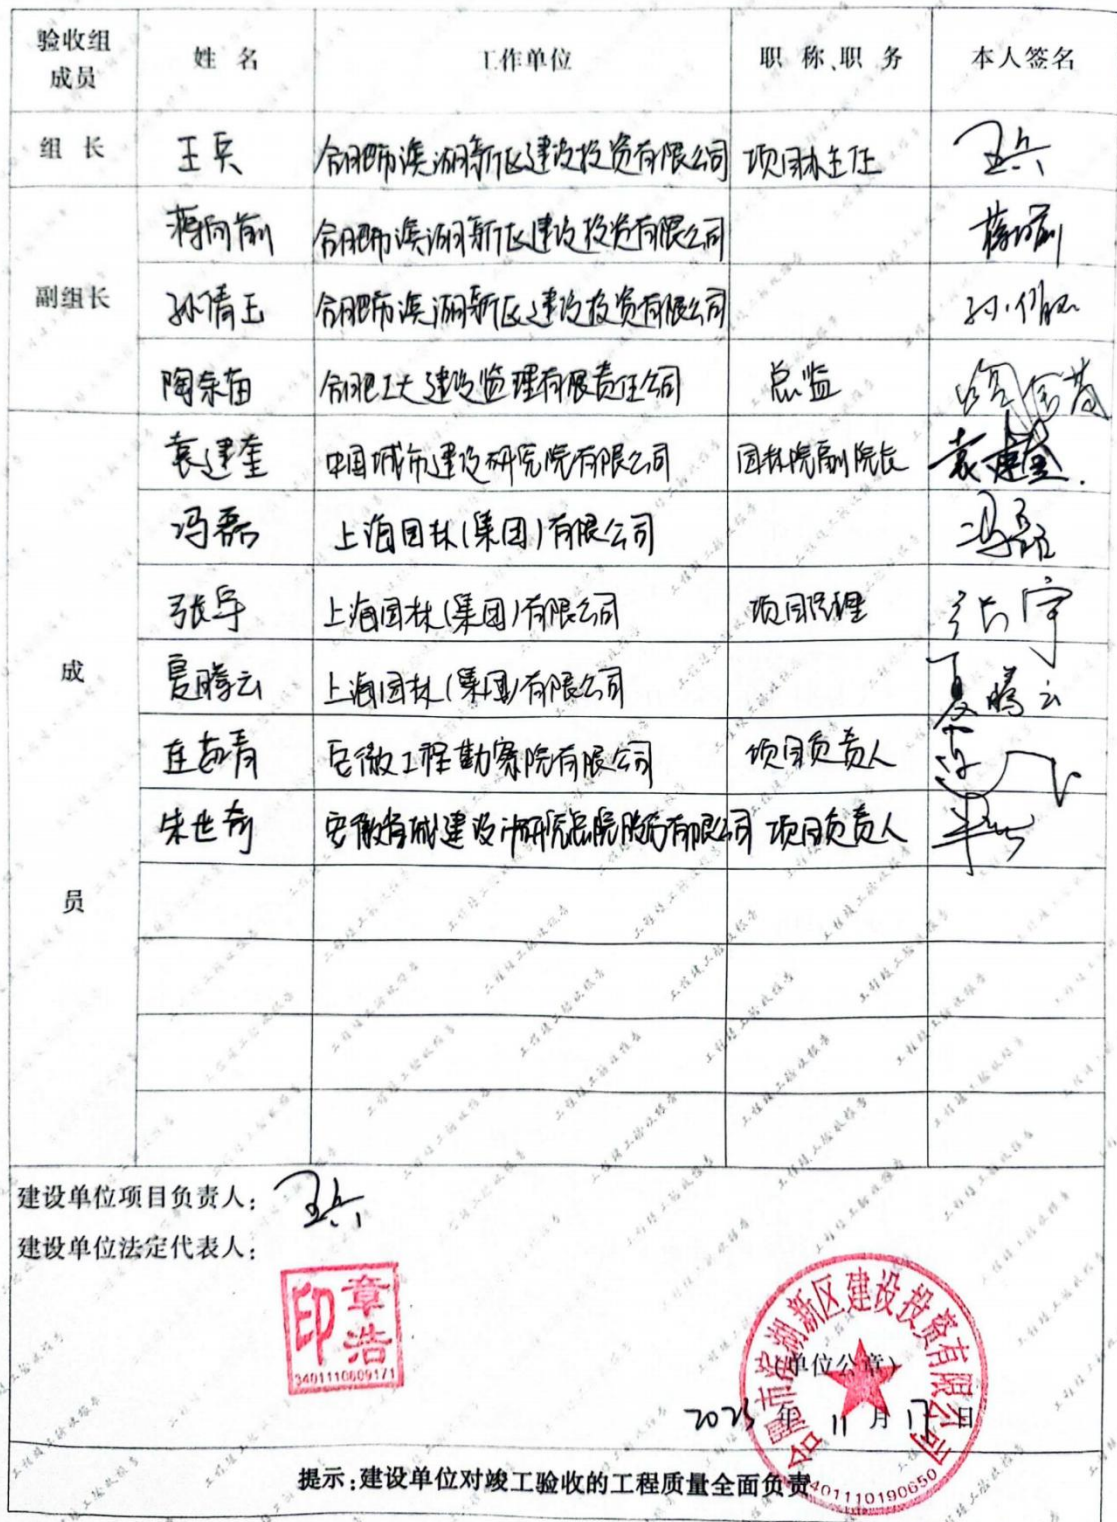 验收组成员 姓 名 工作单位 职 称、职 务 本人签名
组 长 王兵 合肥市滨湖新区建设投资有限公司 项目办主任 王兵
蒋向前 合肥市滨湖新区建设投资有限公司 蒋向前
副组长 孙倩 合肥市滨湖新区建设投资有限公司
陶宗苗 合肥工大建设监理有限责任公司 总监
袁建奎 中国城市建设研究院有限公司 园林院副院长 袁建奎
冯磊 上海园林(集团)有限公司 冯磊
张宇 上海园林(集团)有限公司 项目经理 张宇
成 夏腾云 上海园林(集团)有限公司 夏腾云
连 青 安徽工程勘察院有限公司 项目负责人
朱世奇 安徽省城建设计研究总院股份有限公司 项目负责人
员
建设单位项目负责人: 王兵
建设单位法定代表人:
章浩印
3401110609171
合肥市滨湖新区建设投资有限公司
(单位公章)
2023 年 11 月 17 日
提示:建设单位对竣工验收的工程质量全面负责
3401110190650
工程竣工验收报告